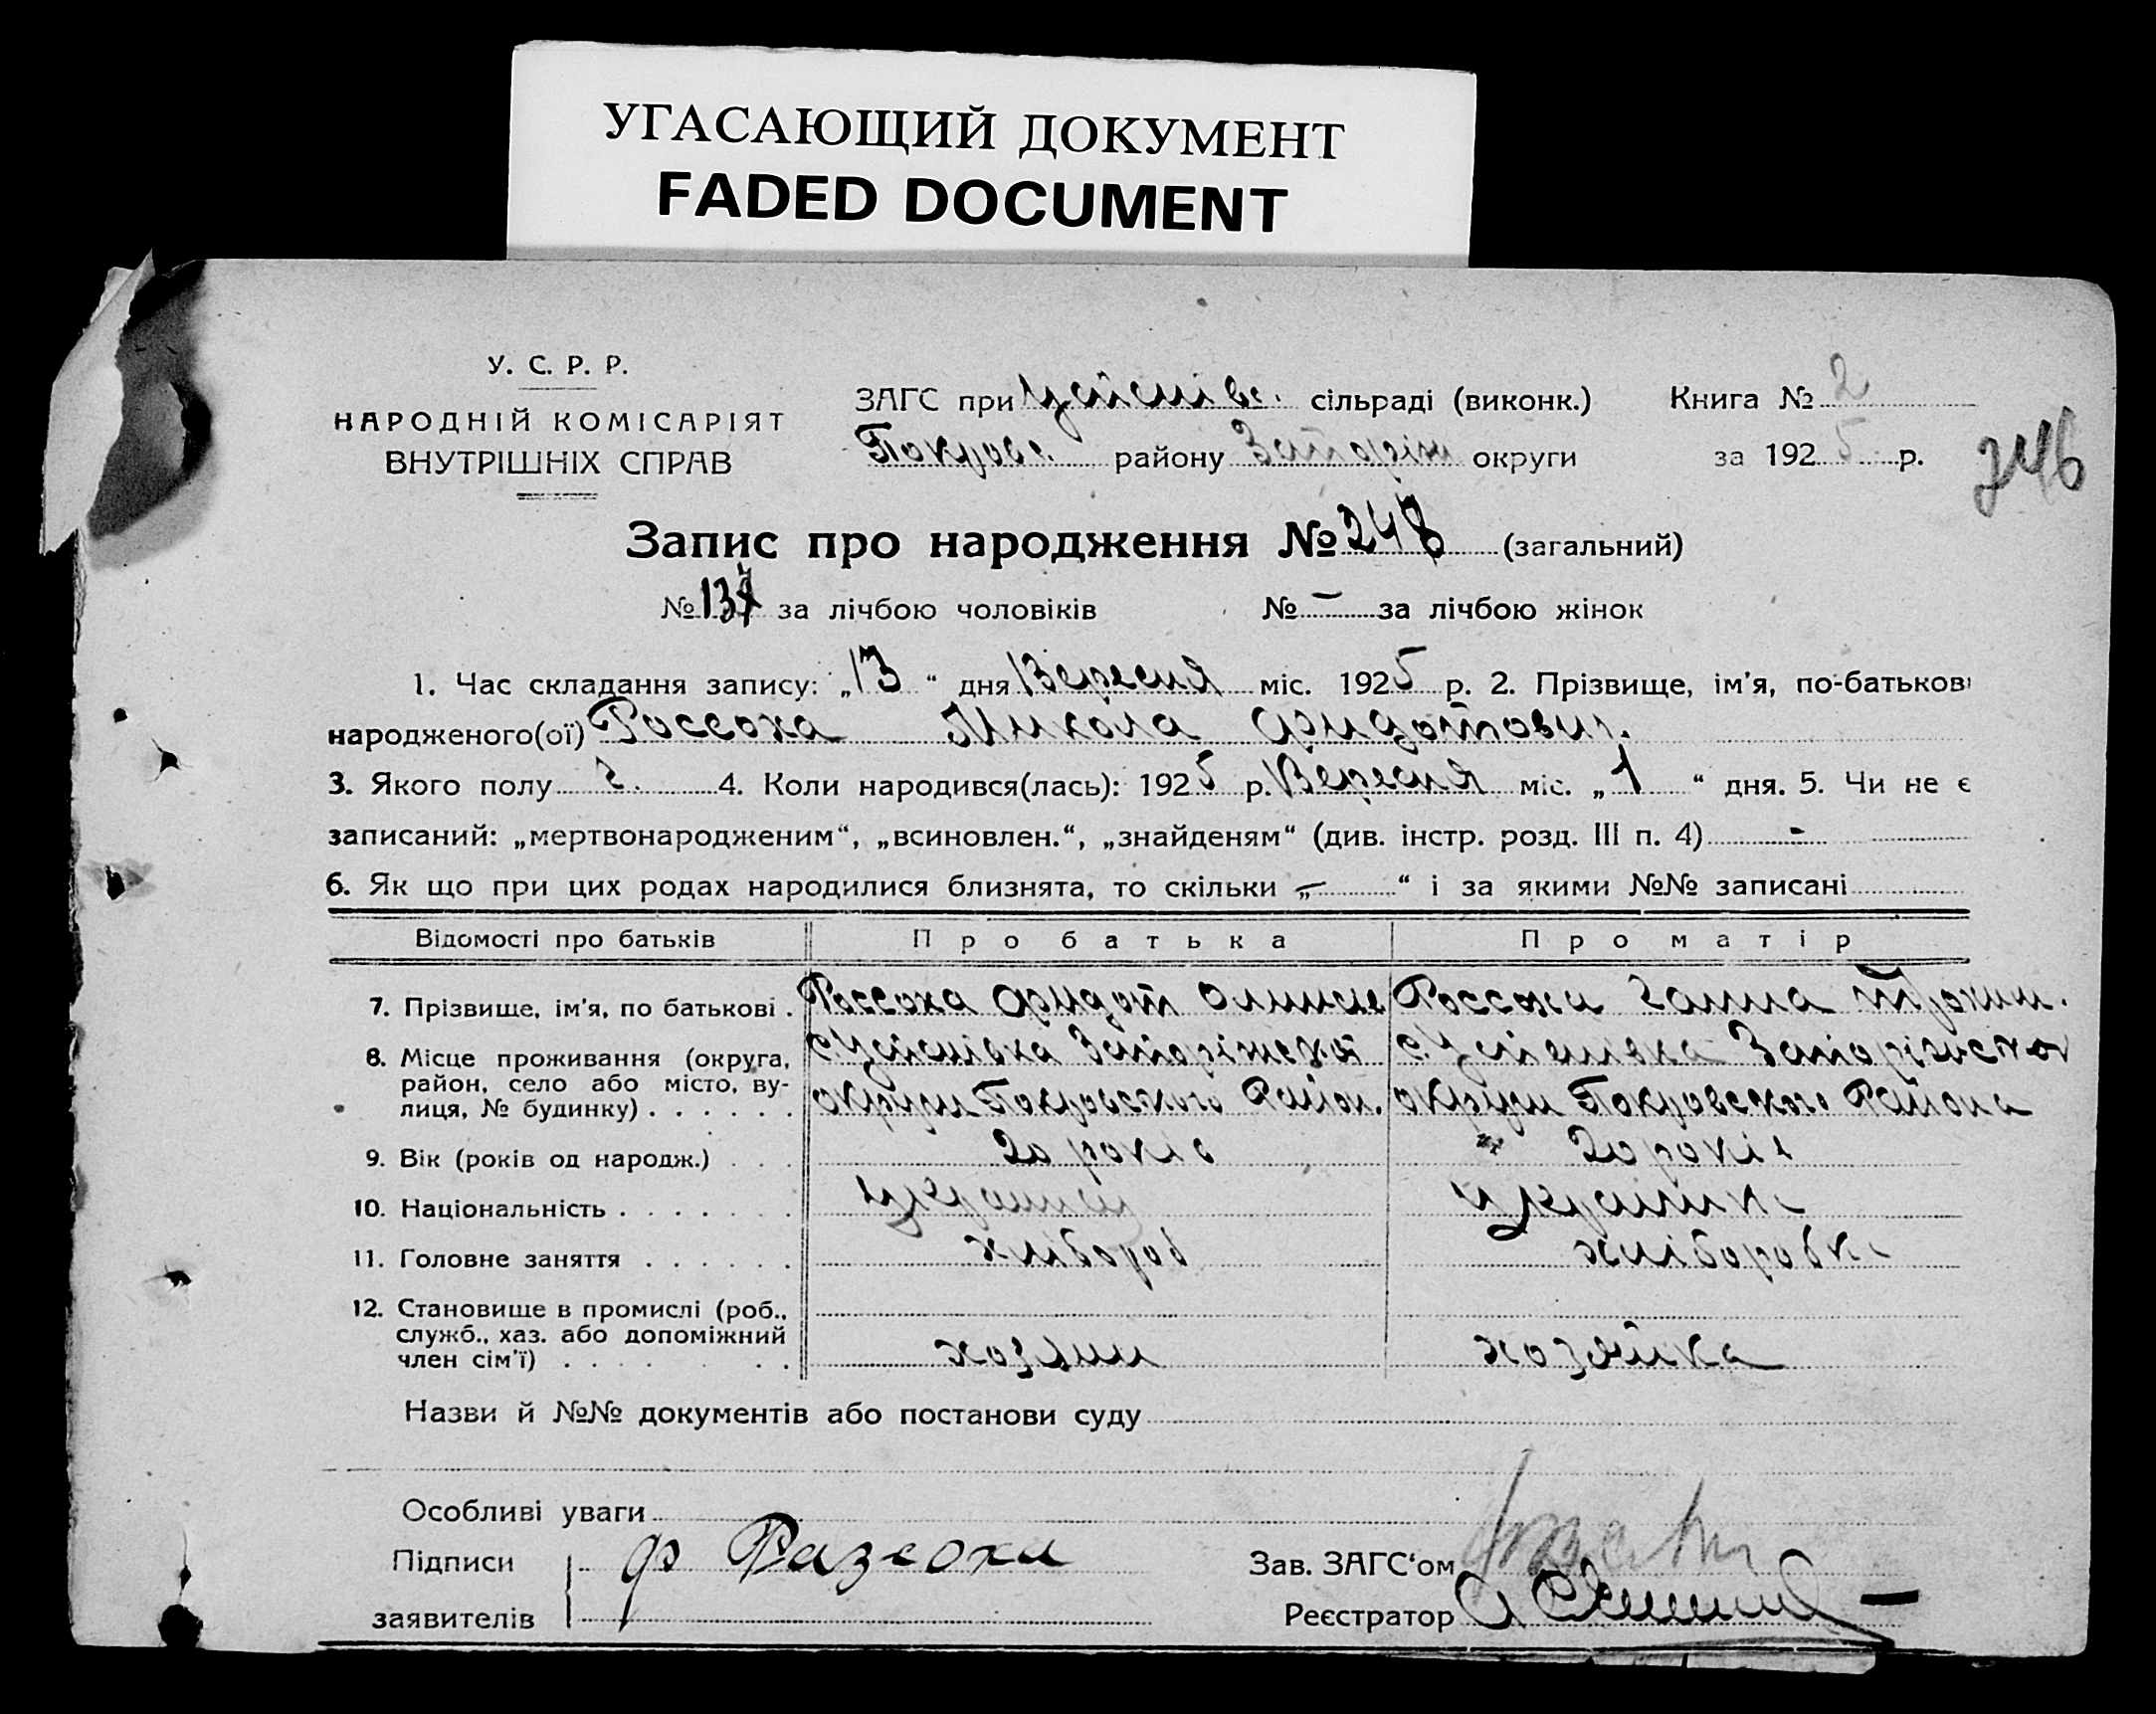 УГАСАЮЩИЙ ДОКУМЕНТ
FADED DOCUMENT
У. С. Р. Р.
НАРОДНІЙ КОМІСАРІЯТ
ВНУТРІШНІХ СПРАВ
ЗАГС при Успенівс. сільраді (виконк.) Книга № 2
Покровс. району Запоріж округи за 1925 р.
246
Запис про народження № 248 (загальний)
№ 137 за лічбою чоловіків № – за лічбою жінок
1. Час складання запису: „13“ дня Вересня міс. 1925 р. 2. Прізвище, ім'я, по-батькові
народженого(ої) Россоха Микола Федотович.
3. Якого полу ч. 4. Коли народився(лась): 1925 р. Вересня міс. „1“ дня. 5. Чи не є
записаний: „мертвонародженим“, „всиновлен.“, „знайденям“ (див. інстр. розд. III п. 4) -
6. Як що при цих родах народилися близнята, то скільки „–“ і за якими №№ записані
Відомості про батьків Про батька Про матір
7. Прізвище, ім'я, по батькові . Россоха Россоха Ганна
8. Місце проживання (округа, район, село або місто, вулиця, № будинку) . . . . . .
с. Успенівка Запоріжської округи Покровського Район.
с. Успенівка Запоріжськой округи Покровського Района
9. Вік (років од народж.) . . . 20 років 20 років
10. Національність . . . . . . . українець українка
11. Головне заняття . . . . . . хлібороб хліборобка
12. Становище в промислі (роб., служб., хаз. або допоміжний член сім'ї) . . . . . . . хозяин хозяйка
Назви й №№ документів або постанови суду
Особливі уваги
Підписи Ф Разсоха Зав. ЗАГС'ом
заявителів Реєстратор